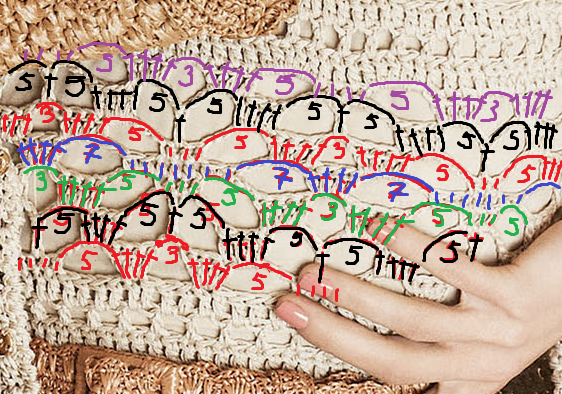 5 3 5 5 3
5 5 5 5 5 5 5 5
3 5 5 3 5 5
7 7 7
3 5 5 3 5 5
5 5 5 5 5 5
5 3 5